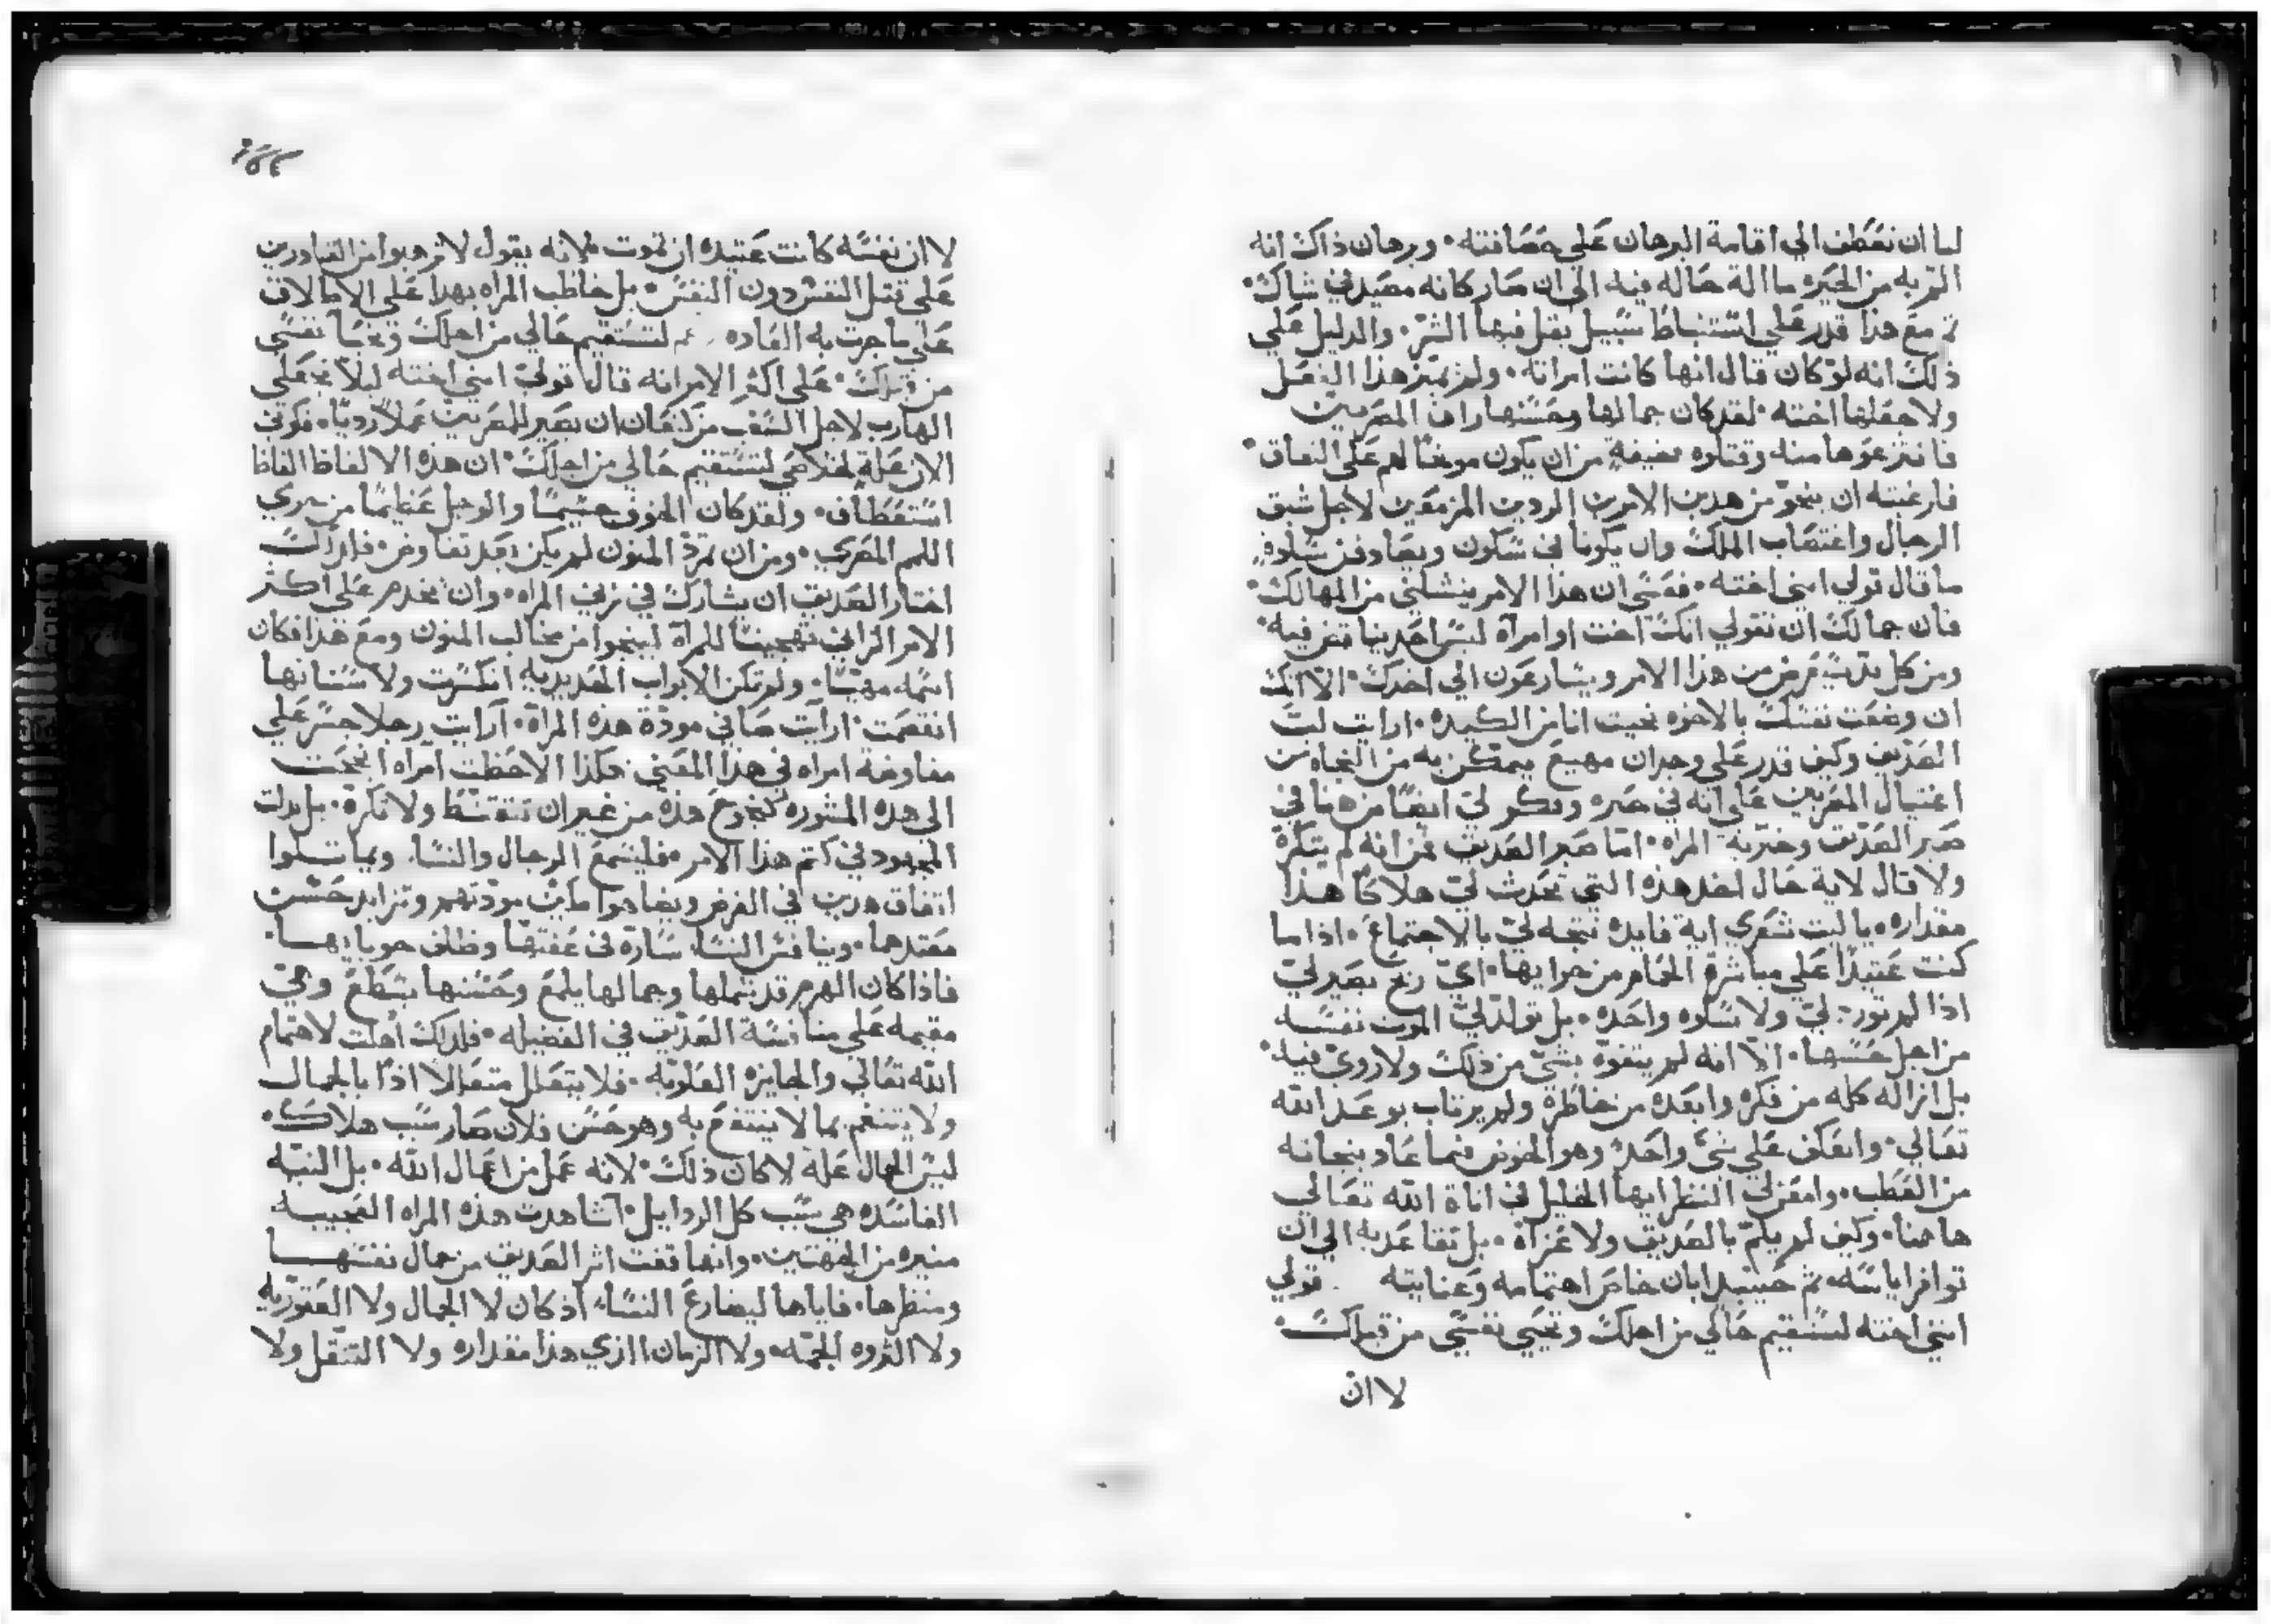 لنا ان نعطف الي اقامة البرهان علي حصافته٠ وبرهان ذاك انه
التم به من الحيره ما الة حاله فيه الي ان صار كانه مصيد في شباك٠
ثم مع هذا قدر علي استنباط سبيل يقل فيها الشر٠ والدليل علي
ذلك انه لو كان قال انها كانت امراته٠ ولم يميز هذا الفعل
ولا جعلها اخته٠ لقد كان جمالها وحسنها راق المصريين
فانتزعوها منه وقتلوه خيفة من ان يكون موبخا لهم علي النفاق٠
فارغبته ان ينجو من هدين الامرين الرديين المزمعين لاجل شبق
الرجال واغتصاب الملك وان يكونا في سكون ويصادفن سلوه
ما قال قولي انني اخته٠ فعسي ان هذا الامر ينشلني من المهالك٠
فان جمالك ان تقولي انك اخت او امرآة ليس احد ينا قض فيه٠
ومن كل بد هذا الامر ويسارعون الي اخدك٠ الا انك
ان وضعت نفسك بالاخوه نجيت انا من الكيده٠ ارايت لب
الصديق وكيف قدر علي وجدان مهيع يمكن به من النجاه من
اغتيال المصريين علي انه في صبره في
صبر الصديق وحرية المراه٠ اما صبر الصديق فمن انه لم يتكره
ولا قال لاية حال اخد هذه التي تحدث لي هلاكا هذا
مقداره٠ يا ليت شعري اية فايده تتجه لي بالاجتماع٠ اذا ما
كنت عتيدا علي مباشرة الحمام من جرايها٠ اي ربح يصير لي
اذا لم تورد لي ولا سلوه واحده٠ بل تولد لي الموت نفسه
من اجل حسنها٠ الا انه لم يتفوه بشي من ذلك ولا روي فيه٠
بل ازاله كله من فكره وابعده من خاطره ولم يرتاب بوعد الله
تعالي٠ وانعكف علي شي واحد وهو الخوف فيما عاد بنجاته
من العطب٠ وامعن لي النظر ايها الخليل في اناة الله تعالي
ها هنا٠ وكيف لم يلم بالصديق ولا عزاه٠ بل تقاعد به الي ان
توافر اياسه٠ ثم حينيد ابان خاص اهتمامه وعنايته قولي
انني اخته لتستقيم حالي من اجلك وتحيي نفسي من قبلك
لا ان
لا ان نفسه كانت عتيده ان تموت فلانه يقول لا ترهبوا من القادرين
علي قتل النفس دون النفس٠ بل خاطب المراه بهدا علي الاطلاق
علي ما جرت به العاده لتستقيم حالي من اجلك وتحيا نفسي
من قبلك٠ علي اكثر الامر انه قال قولي انني اخته ليلا تجعلي
الهارب لاجل السغب من كنعان ان يصير للمصريين عملا رديا٠ فكوني
الان علة لخلاصي لتستقيم حالي من اجلك٠ ان هده الالفاظ الفاظ
استعطاف٠ ولقد كان الخوف جسيما والوجل عظيما من جري
اللمم المصري٠ ومن ان تمرد المنون لم يكن بعد تفاوض٠ فلدلك
اختار الصديق ان يشارك في زني المراه٠ وان يخدم علي اكثر
الامر الزاني تهجينا للمرآة لينجوا من مخالب المنون ومع هذا فكان
اسمه مهيبا٠ ولم تكن الابواب الحديديه انكسرت ولا سنانها
انقصمت٠ ارآيت صافي مودة هذه المرآة٠ آرايت رجلا جسر علي
مفاوضة امراه في هدا المعني هكذا الاحظت امراه انجحت
الي هده المشوره كنجوح هذه من غير ان تتقسط ولا تكره٠ بل بدلت
المجهود في كتم هذا الامر٠ فليسمع الرجال والنسا٠ ويماثلوا
اتفاق هدين في الغرض ويضاهوا طيب مودتهم وتزايد حسن
معتدها٠ وينافس النسا ساره في عفتها وظلف حوبايها٠
فاذا كان الهرم قد شملها وجمالها يلمع وحسنها يسطع وهي
مقيمه علي منافسة الصديق في الفضيله٠ فلدلك آهلت لاهتمام
الله تعالي والجايزه العلويه٠ فلا يتعلل متعللا اذا بالجمال
ولا يتنغم بما لا ينتفع به وهو حسن فلان صار سبب هلاكه٠
ليس الجمال علة لا كان ذلك٠ لانه عمل من اعمال الله٠ بل النيه
الفاسده هي سبب كل الردايل٠ اشاهدت هذه المراه العجيبه
منيره من الجهتين٠ وانها قفت اثر الصديق من جمال نفسها
ومنظرها٠ فاياها ليضارع النسا٠ اذ كان لا الجمال ولا العقوريه
ولا الثروه الجمه٠ ولا الزمان الذي هذا مقداره ولا التنقل ولا